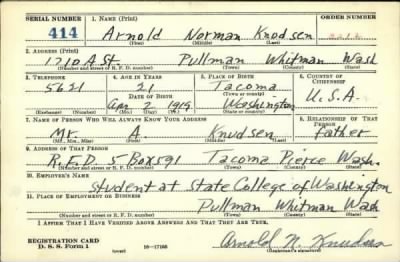 SERIAL NUMBER 1. NAME (Print) ORDER NUMBER
414 Arnold Norman Knudsen
(First) (Middle) (Last)
2. ADDRESS (Print)
1210 A St Pullman Whitman Wash
(Number and street or R. F. D. number) (Town) (County) (State)
3. TELEPHONE 4. AGE IN YEARS 5. PLACE OF BIRTH 6. COUNTRY OF CITIZENSHIP
5621 21 Tacoma
DATE OF BIRTH (Town or county)
Apr 2 1919 Washington U.S.A.
(Exchange) (Number) (Mo.) (Day) (Yr.) (State or country)
7. NAME OF PERSON WHO WILL ALWAYS KNOW YOUR ADDRESS 8. RELATIONSHIP OF THAT PERSON
Mr. A. Knudsen father
(Mr., Mrs., Miss) (First) (Middle) (Last)
9. ADDRESS OF THAT PERSON
R.F.D. 5 Box 591 Tacoma Pierce Wash.
(Number and street or R. F. D. number) (Town) (County) (State)
10. EMPLOYER'S NAME
Student at State College of Washington
11. PLACE OF EMPLOYMENT OR BUSINESS
Pullman Whitman Wash
(Number and street or R. F. D. number) (Town) (County) (State)
I AFFIRM THAT I HAVE VERIFIED ABOVE ANSWERS AND THAT THEY ARE TRUE.
REGISTRATION CARD
D. S. S. Form 1 (over) 16—17105 Arnold N. Knudsen
(Registrant's signature)